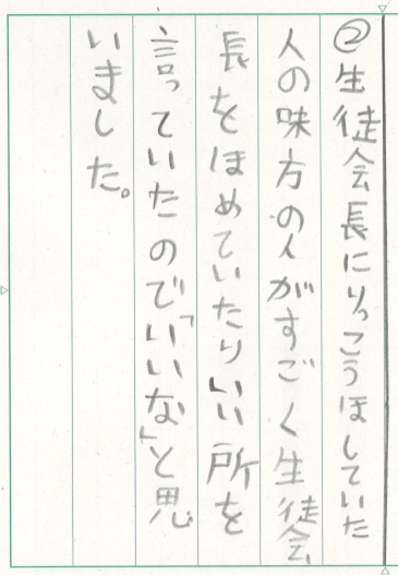 ②生徒会長にりっこうほしていた
人の味方の人がすごく生徒会
長をほめていたりいい所を
言っていたので「いいな」と思
いました。